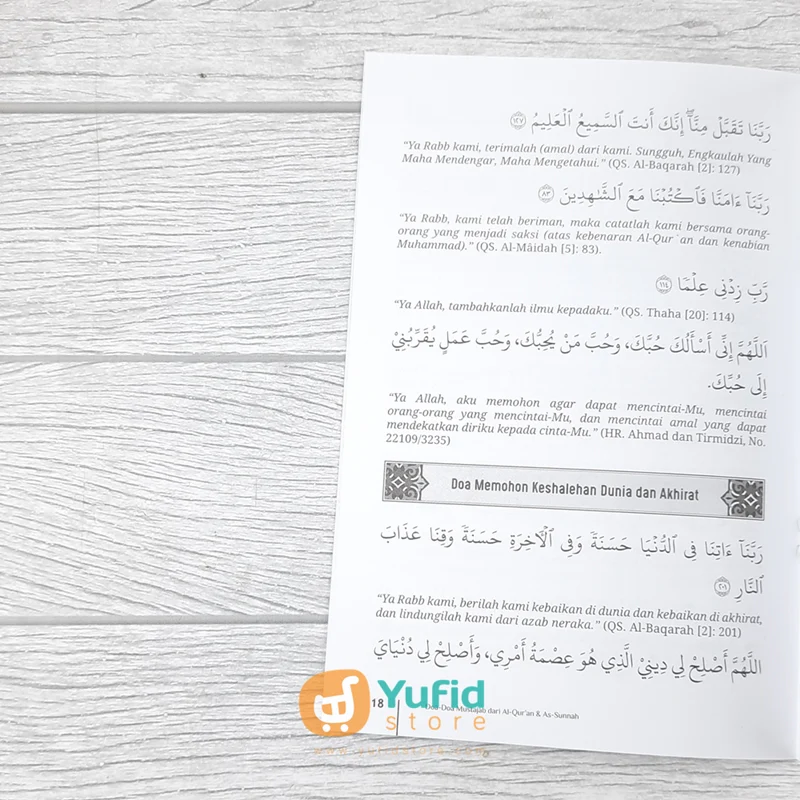 رَبَّنَا تَقَبَّلْ مِنَّآ ۖ إِنَّكَ أَنتَ ٱلسَّمِيعُ ٱلْعَلِيمُ ١٢٧
“Ya Rabb kami, terimalah (amal) dari kami. Sungguh, Engkaulah Yang
Maha Mendengar, Maha Mengetahui.” (QS. Al-Baqarah [2]: 127)
رَبَّنَآ ءَامَنَّا فَٱكْتُبْنَا مَعَ ٱلشَّـٰهِدِينَ ٨٣
“Ya Rabb, kami telah beriman, maka catatlah kami bersama orang-
orang yang menjadi saksi (atas kebenaran Al-Qur`an dan kenabian
Muhammad).” (QS. Al-Mâidah [5]: 83).
رَّبِّ زِدْنِى عِلْمًا ١١٤
“Ya Allah, tambahkanlah ilmu kepadaku.” (QS. Thaha [20]: 114)
اَللَّهُمَّ إِنِّي أَسْأَلُكَ حُبَّكَ، وَحُبَّ مَنْ يُحِبُّكَ، وَحُبَّ عَمَلٍ يُقَرِّبُنِيْ
إِلَى حُبِّكَ.
“Ya Allah, aku memohon agar dapat mencintai-Mu, mencintai
orang-orang yang mencintai-Mu, dan mencintai amal yang dapat
mendekatkan diriku kepada cinta-Mu.” (HR. Ahmad dan Tirmidzi, No.
22109/3235)
Doa Memohon Keshalehan Dunia dan Akhirat
رَبَّنَآ ءَاتِنَا فِى ٱلدُّنْيَا حَسَنَةً وَفِى ٱلْـَٔاخِرَةِ حَسَنَةً وَقِنَا عَذَابَ
ٱلنَّارِ ٢٠١
“Ya Rabb kami, berilah kami kebaikan di dunia dan kebaikan di akhirat,
dan lindungilah kami dari azab neraka.” (QS. Al-Baqarah [2]: 201)
اللَّهُمَّ أَصْلِحْ لِي دِينِيْ الَّذِي هُوَ عِصْمَةُ أَمْرِي، وَأَصْلِحْ لِي دُنْيَايَ
18
Doa-Doa Mustajab dari Al-Qur'an & As-Sunnah
Yufid
store